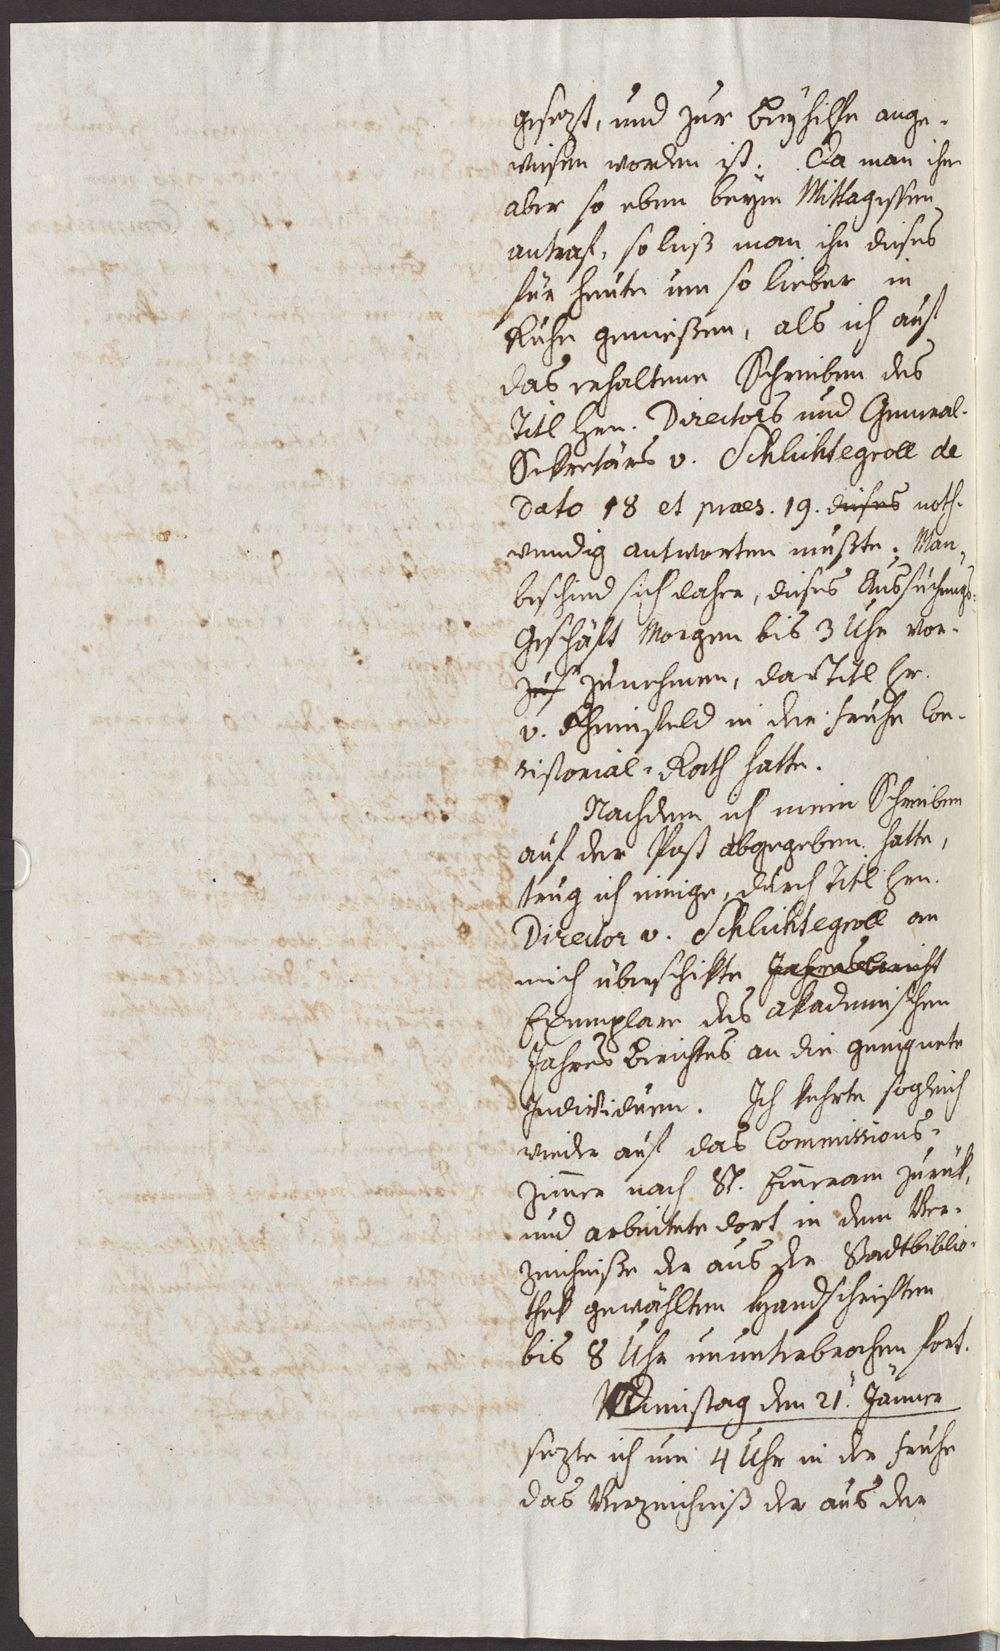 gesezt, und zur Beyhilfe ange-
wiesen worden ist. Da man ihn
aber so eben beym Mittagessen
antraf, so ließ man ihn dieses
für heute um so lieber in
Ruhe genießen, als ich auf
das erhaltene Schreiben des
Titl Hrn. Directors und General-
Sekretärs v. Schlichtegroll de
dato 18 et praes. 19. dieses noth-
wendig antworten mußte. Man
beschied sich daher, dieses Aussuchungs-
Geschäft Morgen bis 3 Uhr vor-
zunehmen, da Titl Hr.
v. Rheinfeld in der Frühe Con-
sistorial-Rath hatte.
Nachdem ich mein Schreiben
auf der Post abgegeben hatte,
trug ich einige, durch Titl Hrn.
Director v. Schlichtegroll an
mich überschikte Jahresbericht
Exemplare des akademischen
Jahres Berichtes an die geeignete
Individuen. Ich kehrte sogleich
wieder auf das Commissions-
Zimmer nach St. Emmeram zurük,
und arbeitete dort in dem Ver-
zeichniße der aus der Stadtbiblio-
thek gewählten Handschriften
bis 8 Uhr ununterbrochen fort.
Dienstag den 21. Jänner
sezte ich um 4 Uhr in der Frühe
das Verzeichniß der aus der